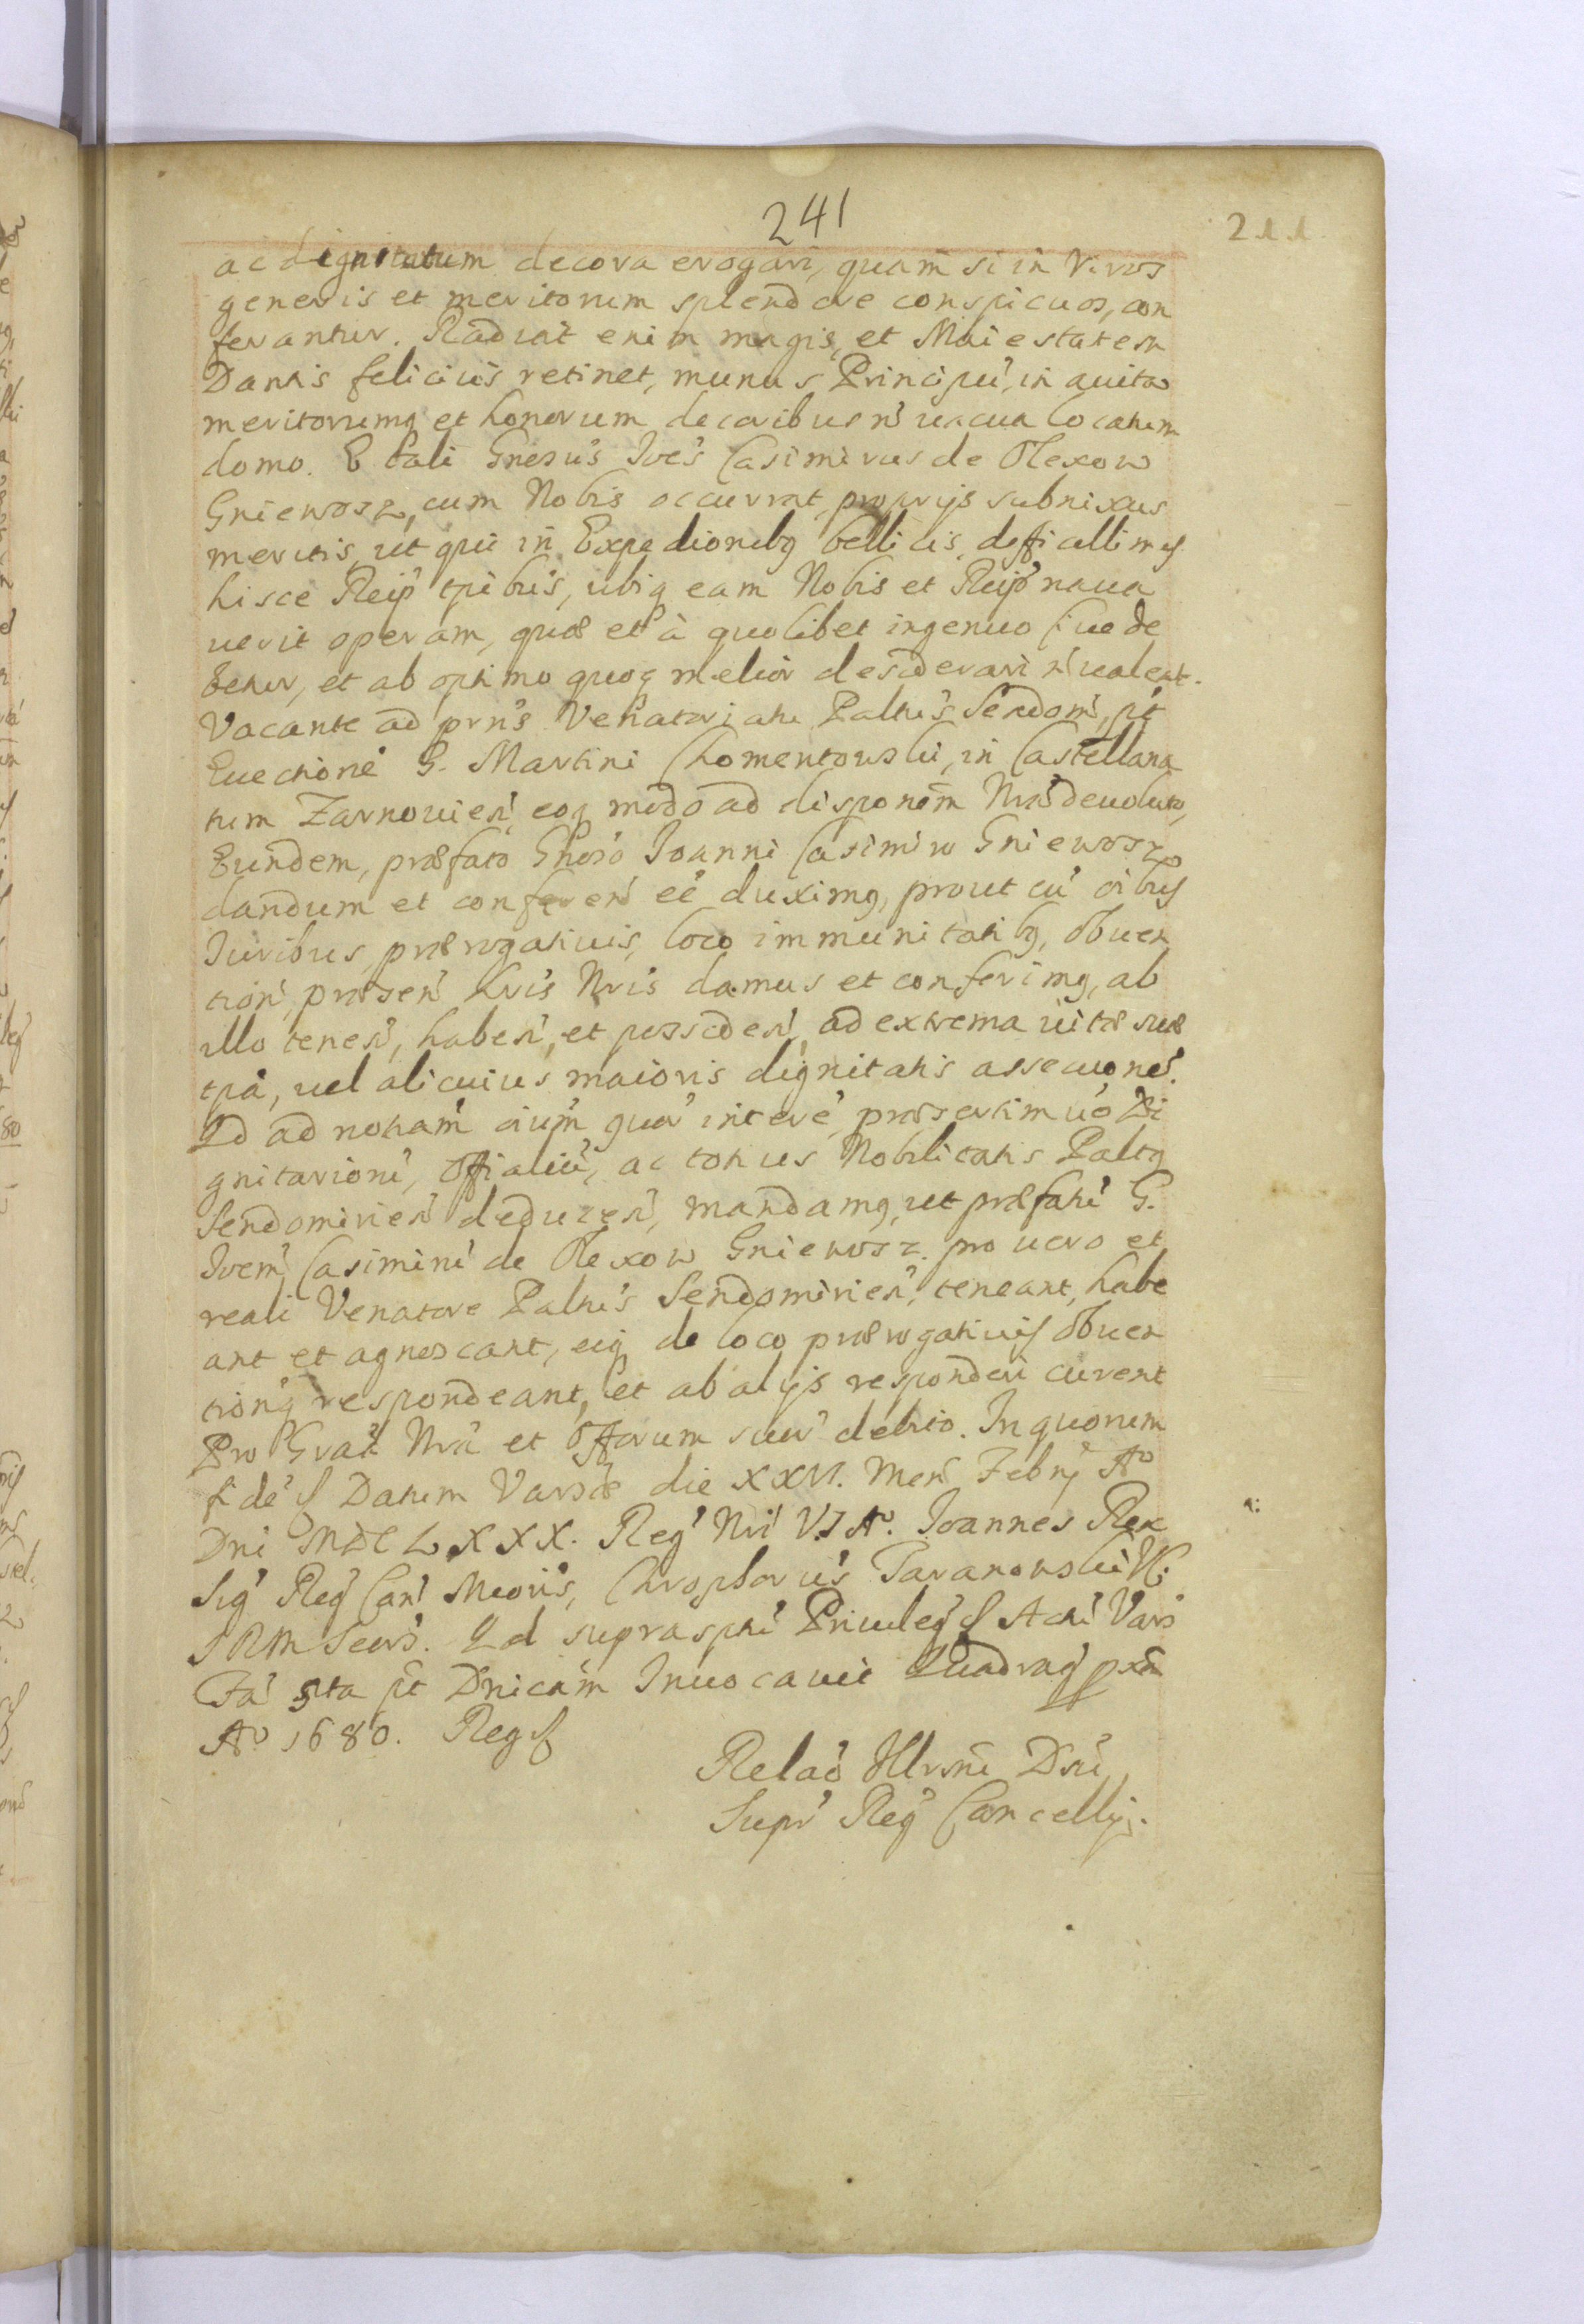 241
211
ac dignitatum decora erogari, quam si in Viros
generis et meritorum splendore conspicuos, con
ferantur. Radiat enim magis, et Maiestatem
Dantis felicius retinet, munus Principu', in auita
meritorumq et honorum decoribus n' uacua locatum
domo. E tali Gnesus Ioe's Casimirus de Olexow
Gniewosz, cum Nobis occurrat, proprijs subnixus
meritis, ut qui in Expedionibq bellicis, difficillimis
hisce Reip' tpibus, ubiq eam Nobis et Reip' naua
uerit operam, quæ et à quolibet ingenuo Ciue de
betur, et ab optimo quoq melior desiderari n' ualeat.
Vacante ad prn's Venatoriatu Paltus Sendom', pt
Euectione G. Martini Chomentowski, in Castellana
tum Zarnouien', eoq modo ad disponem Nra' deuoluto,
Eundem, præfato Gnoso Ioanni Casimiro Gniewosz
dandum et conferen' ee' duximq, prout cu' oibus
Iuribus, prærogatiuis, loco immunitatibq, obuen
tion', præsen' Lris Nris damus et conferimq, ab
illo tenen', haben', et possiden', ad extrema uitæ suæ
tpa, uel alicuius maioris dignitatis assecuone'.
Qd ad notiam oium quor' intere', præsertim uo Di
gnitarioru', Offialiu', ac totius Nobilitatis Paltq
Sendomirien' deducen', mandamq, ut præfatu' G.
Ioem' Casimiru' de Olexow Gniewosz. pro uero et
reali Venatore Paltus Sendomirien', teneant, habe
ant et agnoscant, eiq de loco prærogatiuis obuen
tionq respondeant, et ab alijs responderi curent
Pro Gra' Nra' et Offiorum suor' debito. In quorum
fide' Datum Varsæ die XXVI. Men' Febrj Ao
Dni MDCLXXX. Reg' Nri VI Ao. Ioannes Rex
Sig' Reg' Can' Meoris, Chrsphorus Taranowski
S R M Secrs. Qd suprasptu' Priuileg' Actu' Vars
Fa' 5ta pt Dnicam Inuocauit Quadrag' pxa
Ao 1680. Reg
Relao Illrmi Dni
Supr' Reg' Cancellrj.